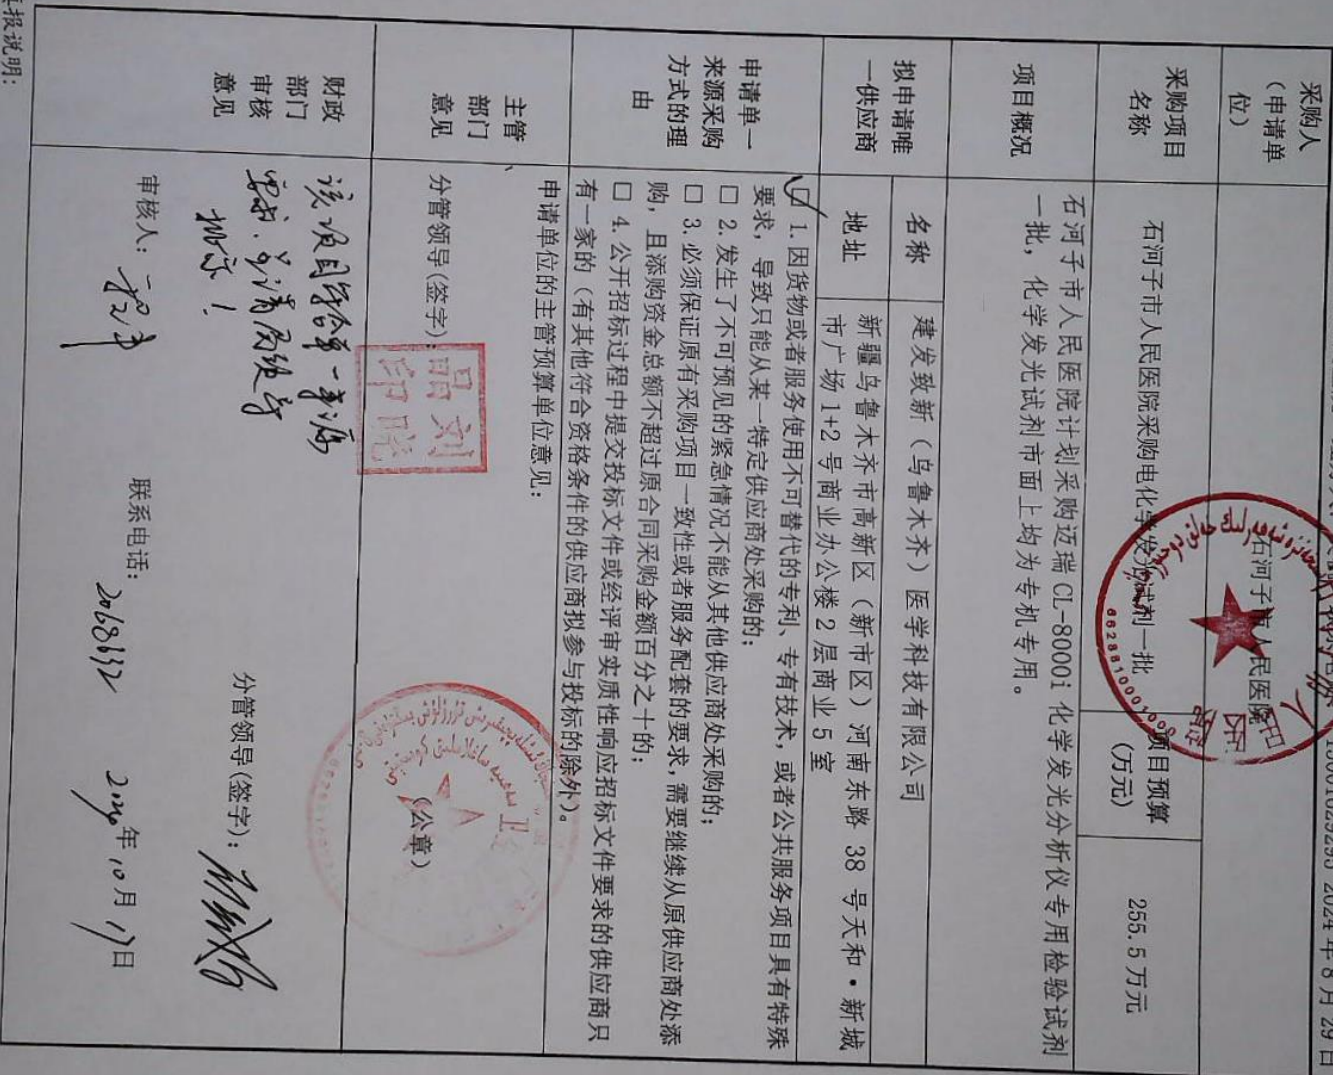 2024年8月29日
采购人
（申请单
位）
石河子市人民医院
采购项目
名称
石河子市人民医院采购电化学发光试剂一批
项目预算
（万元）
255.5万元
项目概况
石河子市人民医院计划采购迈瑞 CL-8000i 化学发光分析仪专用检验试剂
一批，化学发光试剂市面上均为专机专用。
拟申请唯
一供应商
名称
建发致新（乌鲁木齐）医学科技有限公司
地址
新疆乌鲁木齐市高新区（新市区）河南东路 38 号天和·新城
市广场 1+2 号商业办公楼 2 层商业 5 室
申请单一
来源采购
方式的理
由
☑ 1. 因货物或者服务使用不可替代的专利、专有技术，或者公共服务项目具有特殊
要求，导致只能从某一特定供应商处采购的；
□ 2. 发生了不可预见的紧急情况不能从其他供应商处采购的；
□ 3. 必须保证原有采购项目一致性或者服务配套的要求，需要继续从原供应商处添
购，且添购资金总额不超过原合同采购金额百分之十的；
□ 4. 公开招标过程中提交投标文件或经评审实质性响应招标文件要求的供应商只
有一家的（有其他符合资格条件的供应商拟参与投标的除外）。
主管
部门
意见
申请单位的主管预算单位意见：
分管领导(签字)：
刘晓晶印
（公章）
财政
部门
审核
意见
该项目符合单一来源
要求，
批示！
分管领导(签字)：
审核人：
联系电话：
2068632
2024年10月17日
填报说明：